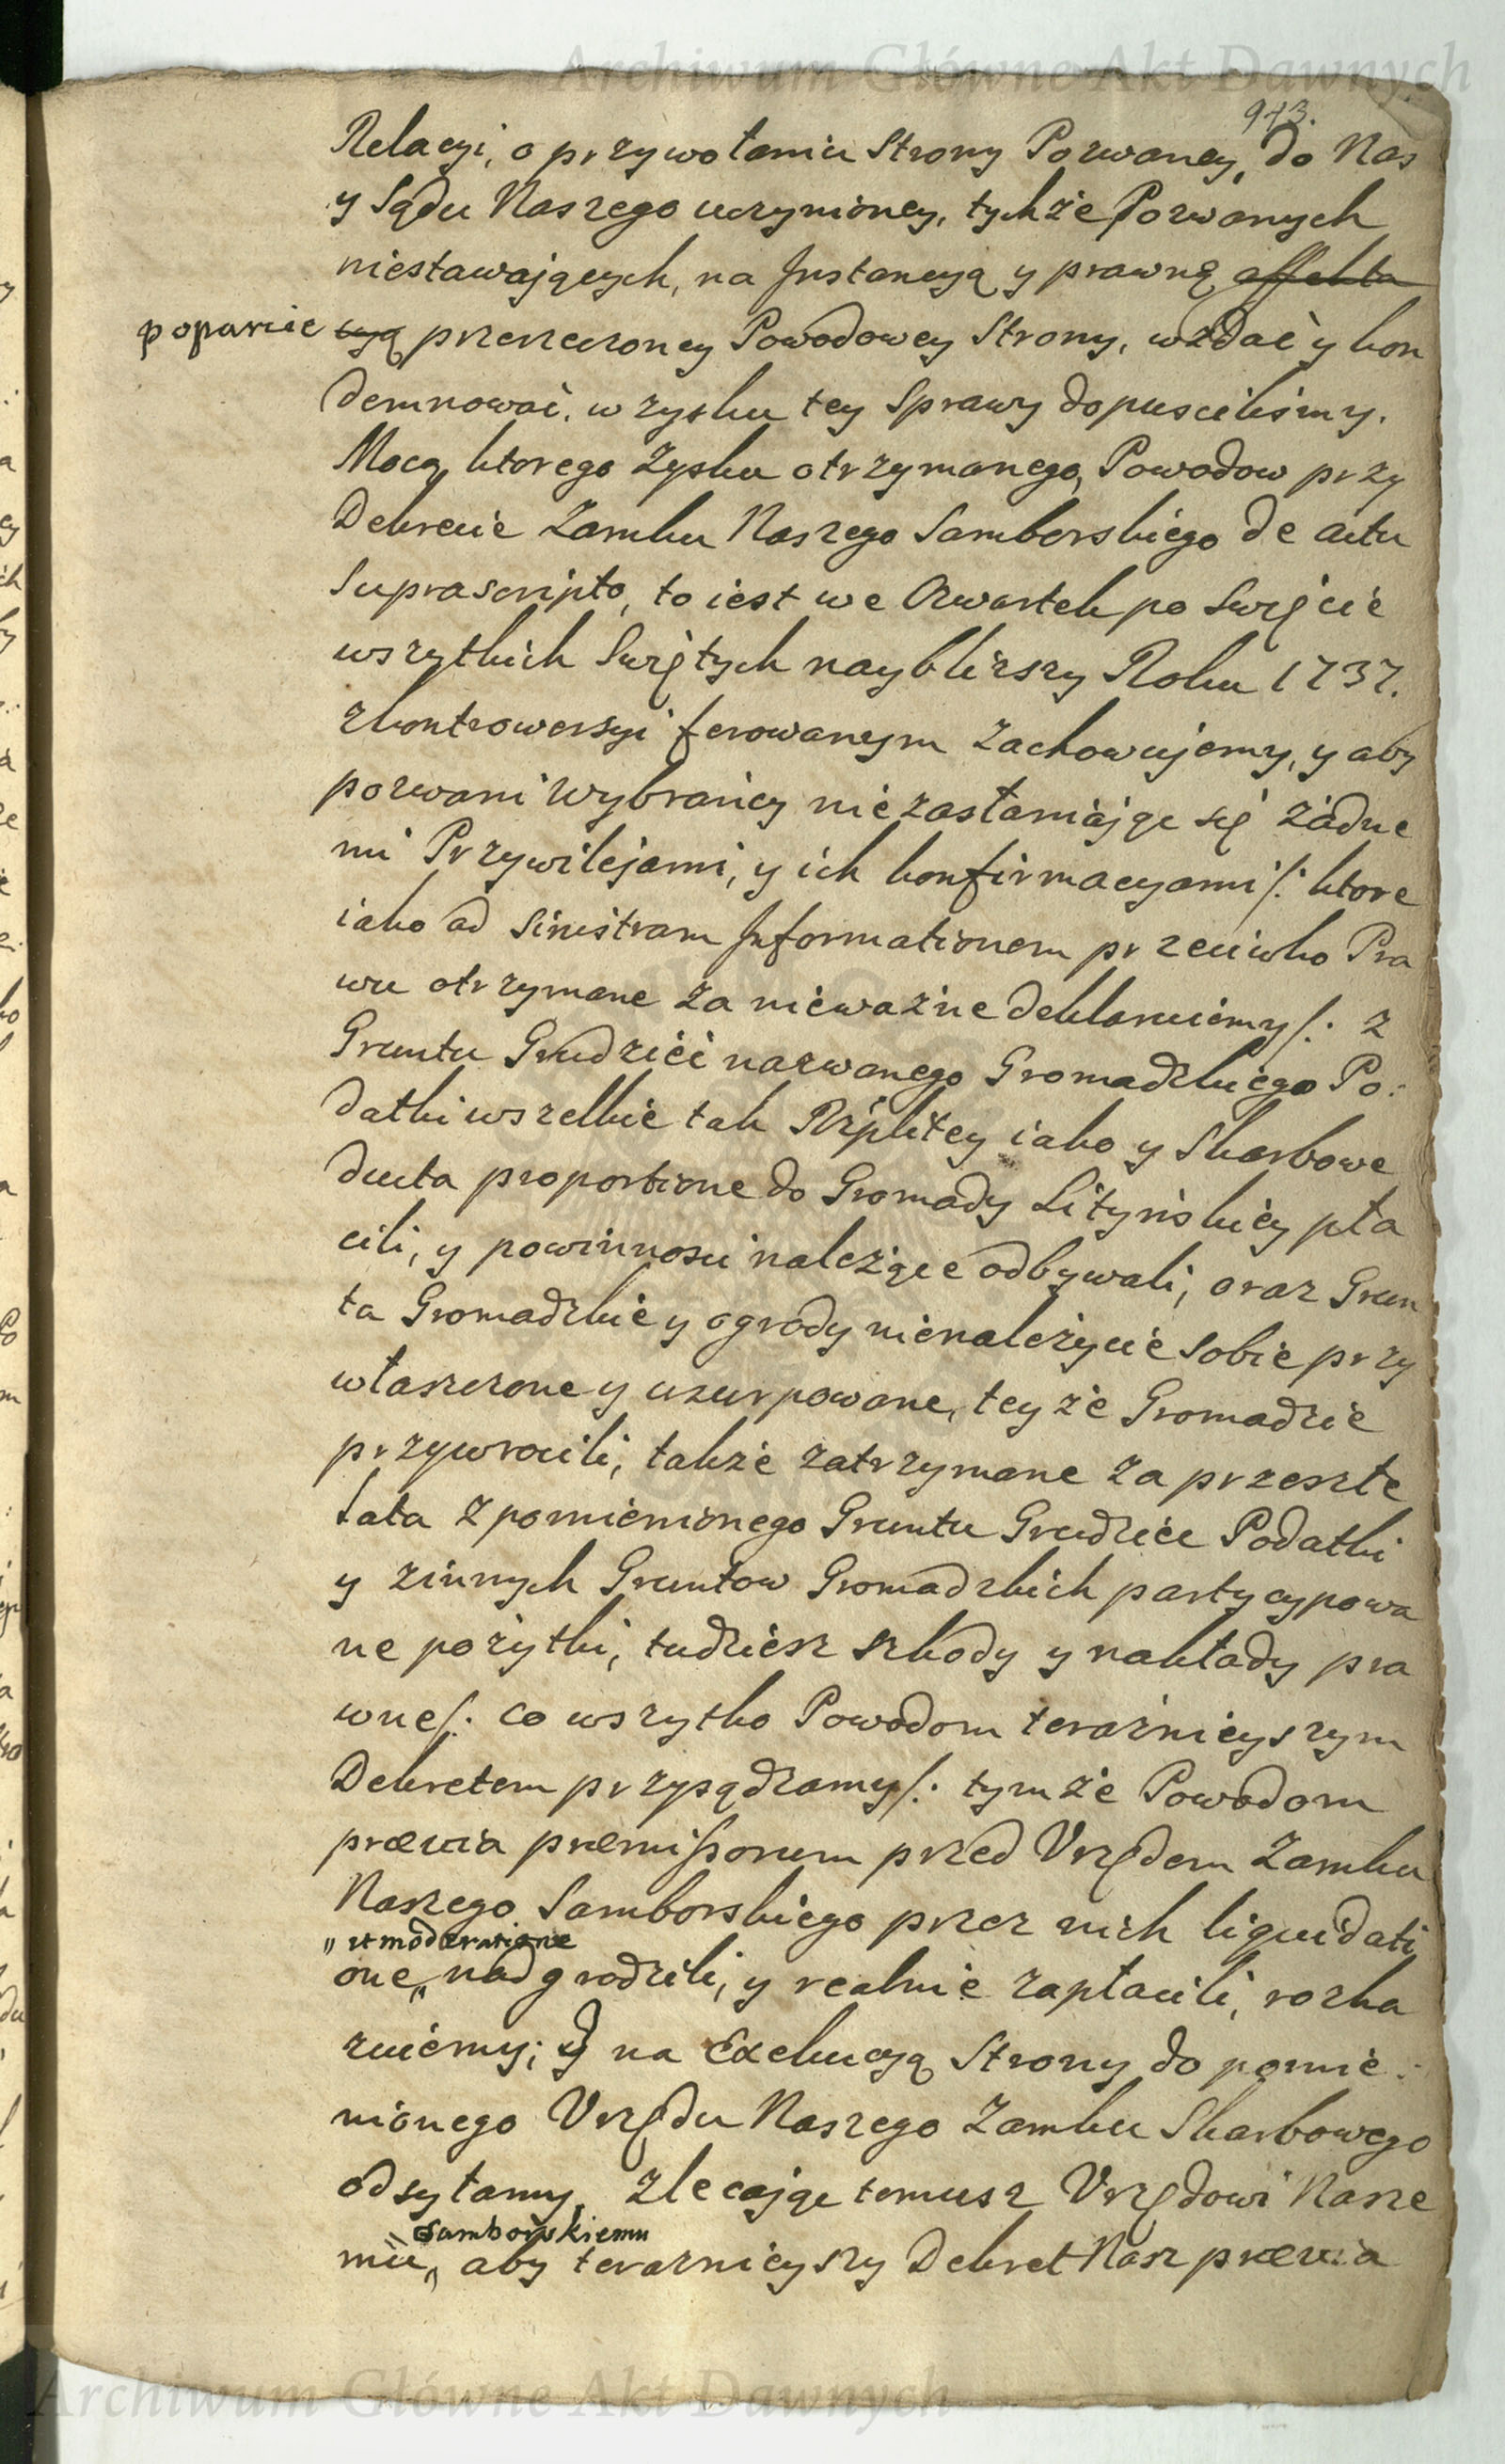 Archiwum Główne Akt Dawnych
943.
Relacyi, o przywołaniu Strony Pozwaney, do Nas
y Sądu Naszego uczynioney, tychże Pozwanych
niestawających, na Instancyą y prawną affekta
poparcie cyą przerzeczoney Powodowey Strony, wzdać y kon
demnować, w zysku tey Sprawy dopuściliśmy.
Mocą ktorego Zysku otrzymanego, Powodow przy
Dekrecie Zamku Naszego Samborskiego de actu
Suprascripto, to iest we Czwartek po Swięcie
wszytkich Swiętych naybliższy Roku 1737.
z kontrowersyi ferowanym zachowujemy, y aby
pozwani Wybrańcy niezasłaniając się żadne
mi Przywilejami, y ich konfirmacyami /: ktore
iako ad sinistram Informationem przeciwko Pra
wu otrzymane za nieważne deklaruiemy /: z
Gruntu Grudzieć nazwanego Gromadzkiego Po:
datki wszelkie tak Rzpltey iako y Skarbowe
ducta proportione do Gromady Lityńskiey pła
cili, y powinnosci należące odbywali, oraz Grun
ta Gromadzkie y ogrody nienależycie sobie przy
właszczone y uzurpowane, teyże Gromadzie
przywrocili, także zatrzymane za przeszłe
lata z pomienionego Gruntu Grudziec Podatki
y z innych Gruntow Gromadzkich partycypowa
ne pożytki, tudziesz szkody y nakłady pra
wne /: co wszytko Powodom teraznieyszym
Dekretem przysądzamy /: tymże Powodom
prævia præmissorum przed Urzędem Zamku
Naszego Samborskiego przez nich liquidati
„ et moderatione
one „ nadgrodzili, y realnie zapłacili, rozka
zuiemy; Y na Exekucyą Strony do pomie:
nionego Urzędu Naszego Zamku Skarbowego
odsyłamy, Zlecając temusz Urzędowi Nasze
Samborskiemu
mu „ aby teraznieyszy Dekret Nasz prævia
Archiwum Główne Akt Dawnych